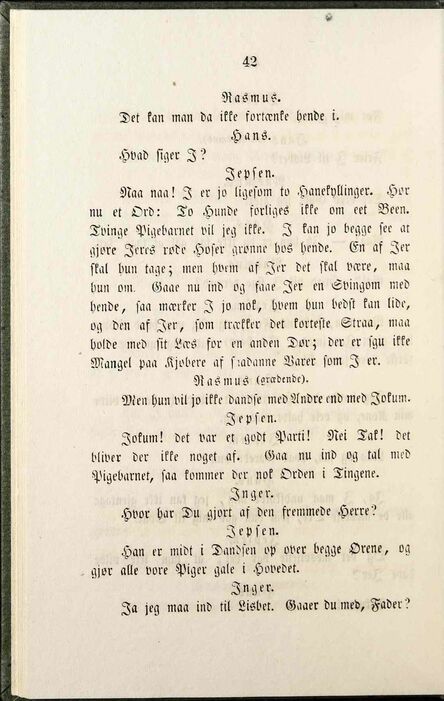 42
Rasmus.
Det kan man da ikke fortænke hende i.
Hans.
Hvad siger I?
Jepsen.
Naa naa! I er jo ligesom to Hanekyllinger. Hør
nu et Ord: To Hunde forliges ikke om eet Been.
Tvinge Pigebarnet vil jeg ikke. I kan jo begge see at
gjøre Jeres røde Hoser grønne hos hende. En af Jer
skal hun tage; men hvem af Jer det skal være, maa
hun om. Gaae nu ind og faae Jer en Svingom med
hende, saa mærker I jo nok, hvem hun bedst kan lide,
og den af Jer, som trækker det korteste Straa, maa
holde med sit Læs for en anden Dør; der er sgu ikke
Mangel paa Kjøbere af saadanne Varer som I er.
Rasmus (grædende).
Men hun vil jo ikke dandse med Andre end med Jokum.
Jepsen.
Jokum! det var et godt Parti! Nei Tak! det
bliver der ikke noget af. Gaa nu ind og tal med
Pigebarnet, saa kommer der nok Orden i Tingene.
Inger.
Hvor har Du gjort af den fremmede Herre?
Jepsen.
Han er midt i Dandsen op over begge Ørene, og
gjør alle vore Piger gale i Hovedet.
Inger.
Ja jeg maa ind til Lisbet. Gaaer du med, Fader?